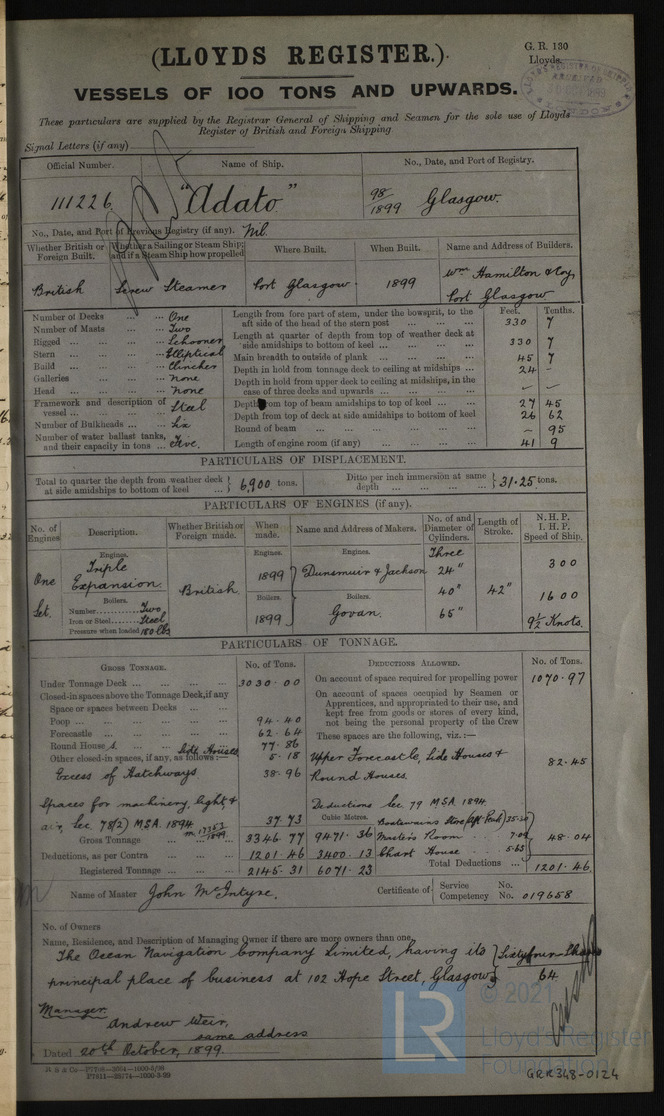 (LLOYDS REGISTER.)
G. R. 130
Lloyds.
VESSELS OF 100 TONS AND UPWARDS.
These particulars are supplied by the Registrar General of Shipping and Seamen for the sole use of Lloyds
Register of British and Foreign Shipping
Signal Letters (if any)
Official Number. Name of Ship. No., Date, and Port of Registry.
111226 "Adato" 98/1899 Glasgow.
No., Date, and Port of Previous Registry (if any). Nil
Whether British or Foreign Built. Whether a Sailing or Steam Ship; and if a Steam Ship how propelled Where Built. When Built. Name and Address of Builders.
British Screw Steamer Port Glasgow. 1899 Wm Hamilton & Coy, Port Glasgow
Feet. Tenths.
Number of Decks ... One
Number of Masts ... Two
Rigged ... Schooner
Stern ... Elliptical
Build ... Clincher
Galleries ... None
Head ... None
Framework and description of vessel ... Steel
Number of Bulkheads ... Six
Number of water ballast tanks, and their capacity in tons ... Five.
Length from fore part of stem, under the bowsprit, to the aft side of the head of the stern post ... 330 7
Length at quarter of depth from top of weather deck at side amidships to bottom of keel ... 330 7
Main breadth to outside of plank ... 45 7
Depth in hold from tonnage deck to ceiling at midships ... 24 -
Depth in hold from upper deck to ceiling at midships, in the case of three decks and upwards ... - -
Depth from top of beam amidships to top of keel ... 27 45
Depth from top of deck at side amidships to bottom of keel 26 62
Round of beam ... - 95
Length of engine room (if any) ... 41 9
PARTICULARS OF DISPLACEMENT.
Total to quarter the depth from weather deck at side amidships to bottom of keel ... } 6,900 tons. Ditto per inch immersion at same depth ... } 31.25 tons.
PARTICULARS OF ENGINES (if any).
No. of Engines Description. Whether British or Foreign made. When made. Name and Address of Makers. No. of and Diameter of Cylinders. Length of Stroke. N. H. P. I. H. P. Speed of Ship.
Engines. Engines. Engines. Three
Triple 1899 Dunsmuir & Jackson 24" 300
One Expansion. British 40" 42"
Set. Boilers. Boilers. Boilers. 1600
Number ... Two Govan. 65"
Iron or Steel ... Steel 1899 9½ Knots.
Pressure when loaded 180 lbs
PARTICULARS OF TONNAGE.
GROSS TONNAGE. No. of Tons. DEDUCTIONS ALLOWED. No. of Tons.
Under Tonnage Deck ... 3030.00
Closed-in spaces above the Tonnage Deck, if any
Space or spaces between Decks ...
Poop ... 94.40
Forecastle ... 62.64
Round Houses ... Side Houses 77.86
Other closed-in spaces, if any, as follows:— 5.18
Excess of Hatchways 38.96
Spaces for machinery, light &
air, Sec 78(2) MSA. 1894 37.73
Gross Tonnage ... 3346.77 9471.36
Deductions, as per Contra ... 1201.46 3400.13
Registered Tonnage ... 2145.31 6071.23
Cubic Metres.
On account of space required for propelling power 1070.97
On account of spaces occupied by Seamen or Apprentices, and appropriated to their use, and kept free from goods or stores of every kind, not being the personal property of the Crew
These spaces are the following, viz.:—
Upper Forecastle, Side Houses & 82.45
Round Houses.
Deductions Sec. 79 MSA. 1894
Boatswains Store (Aft Peak)
Master's Room 48.04
Chart House 5.65
Total Deductions ... 1201.46
Name of Master John McIntyre. Certificate of { Service No. Competency No. 019658
No. of Owners
Name, Residence, and Description of Managing Owner if there are more owners than one
The Ocean Navigation Company Limited, having its } Sixty four Shares
principal place of business at 102 Hope Street, Glasgow } 64
Manager
Andrew Weir,
same address
Dated 20th October, 1899.
LR
© 2021
Lloyd's Register
Foundation
GRR348-0124